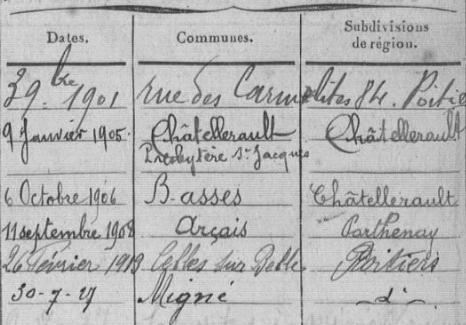 Dates. Communes. Subdivisions
de région.
1901 rue des Carmélites 84. Poitie
9 Janvier 1905. Châtellerault Châtellerault
Presbytère St Jacques
6 Octobre 1906 Basses Châtellerault
11 septembre 1908 Arçais Parthenay
26 Février 1913 Celles sur Belle Poitiers
30-7-27 Migné - d° -